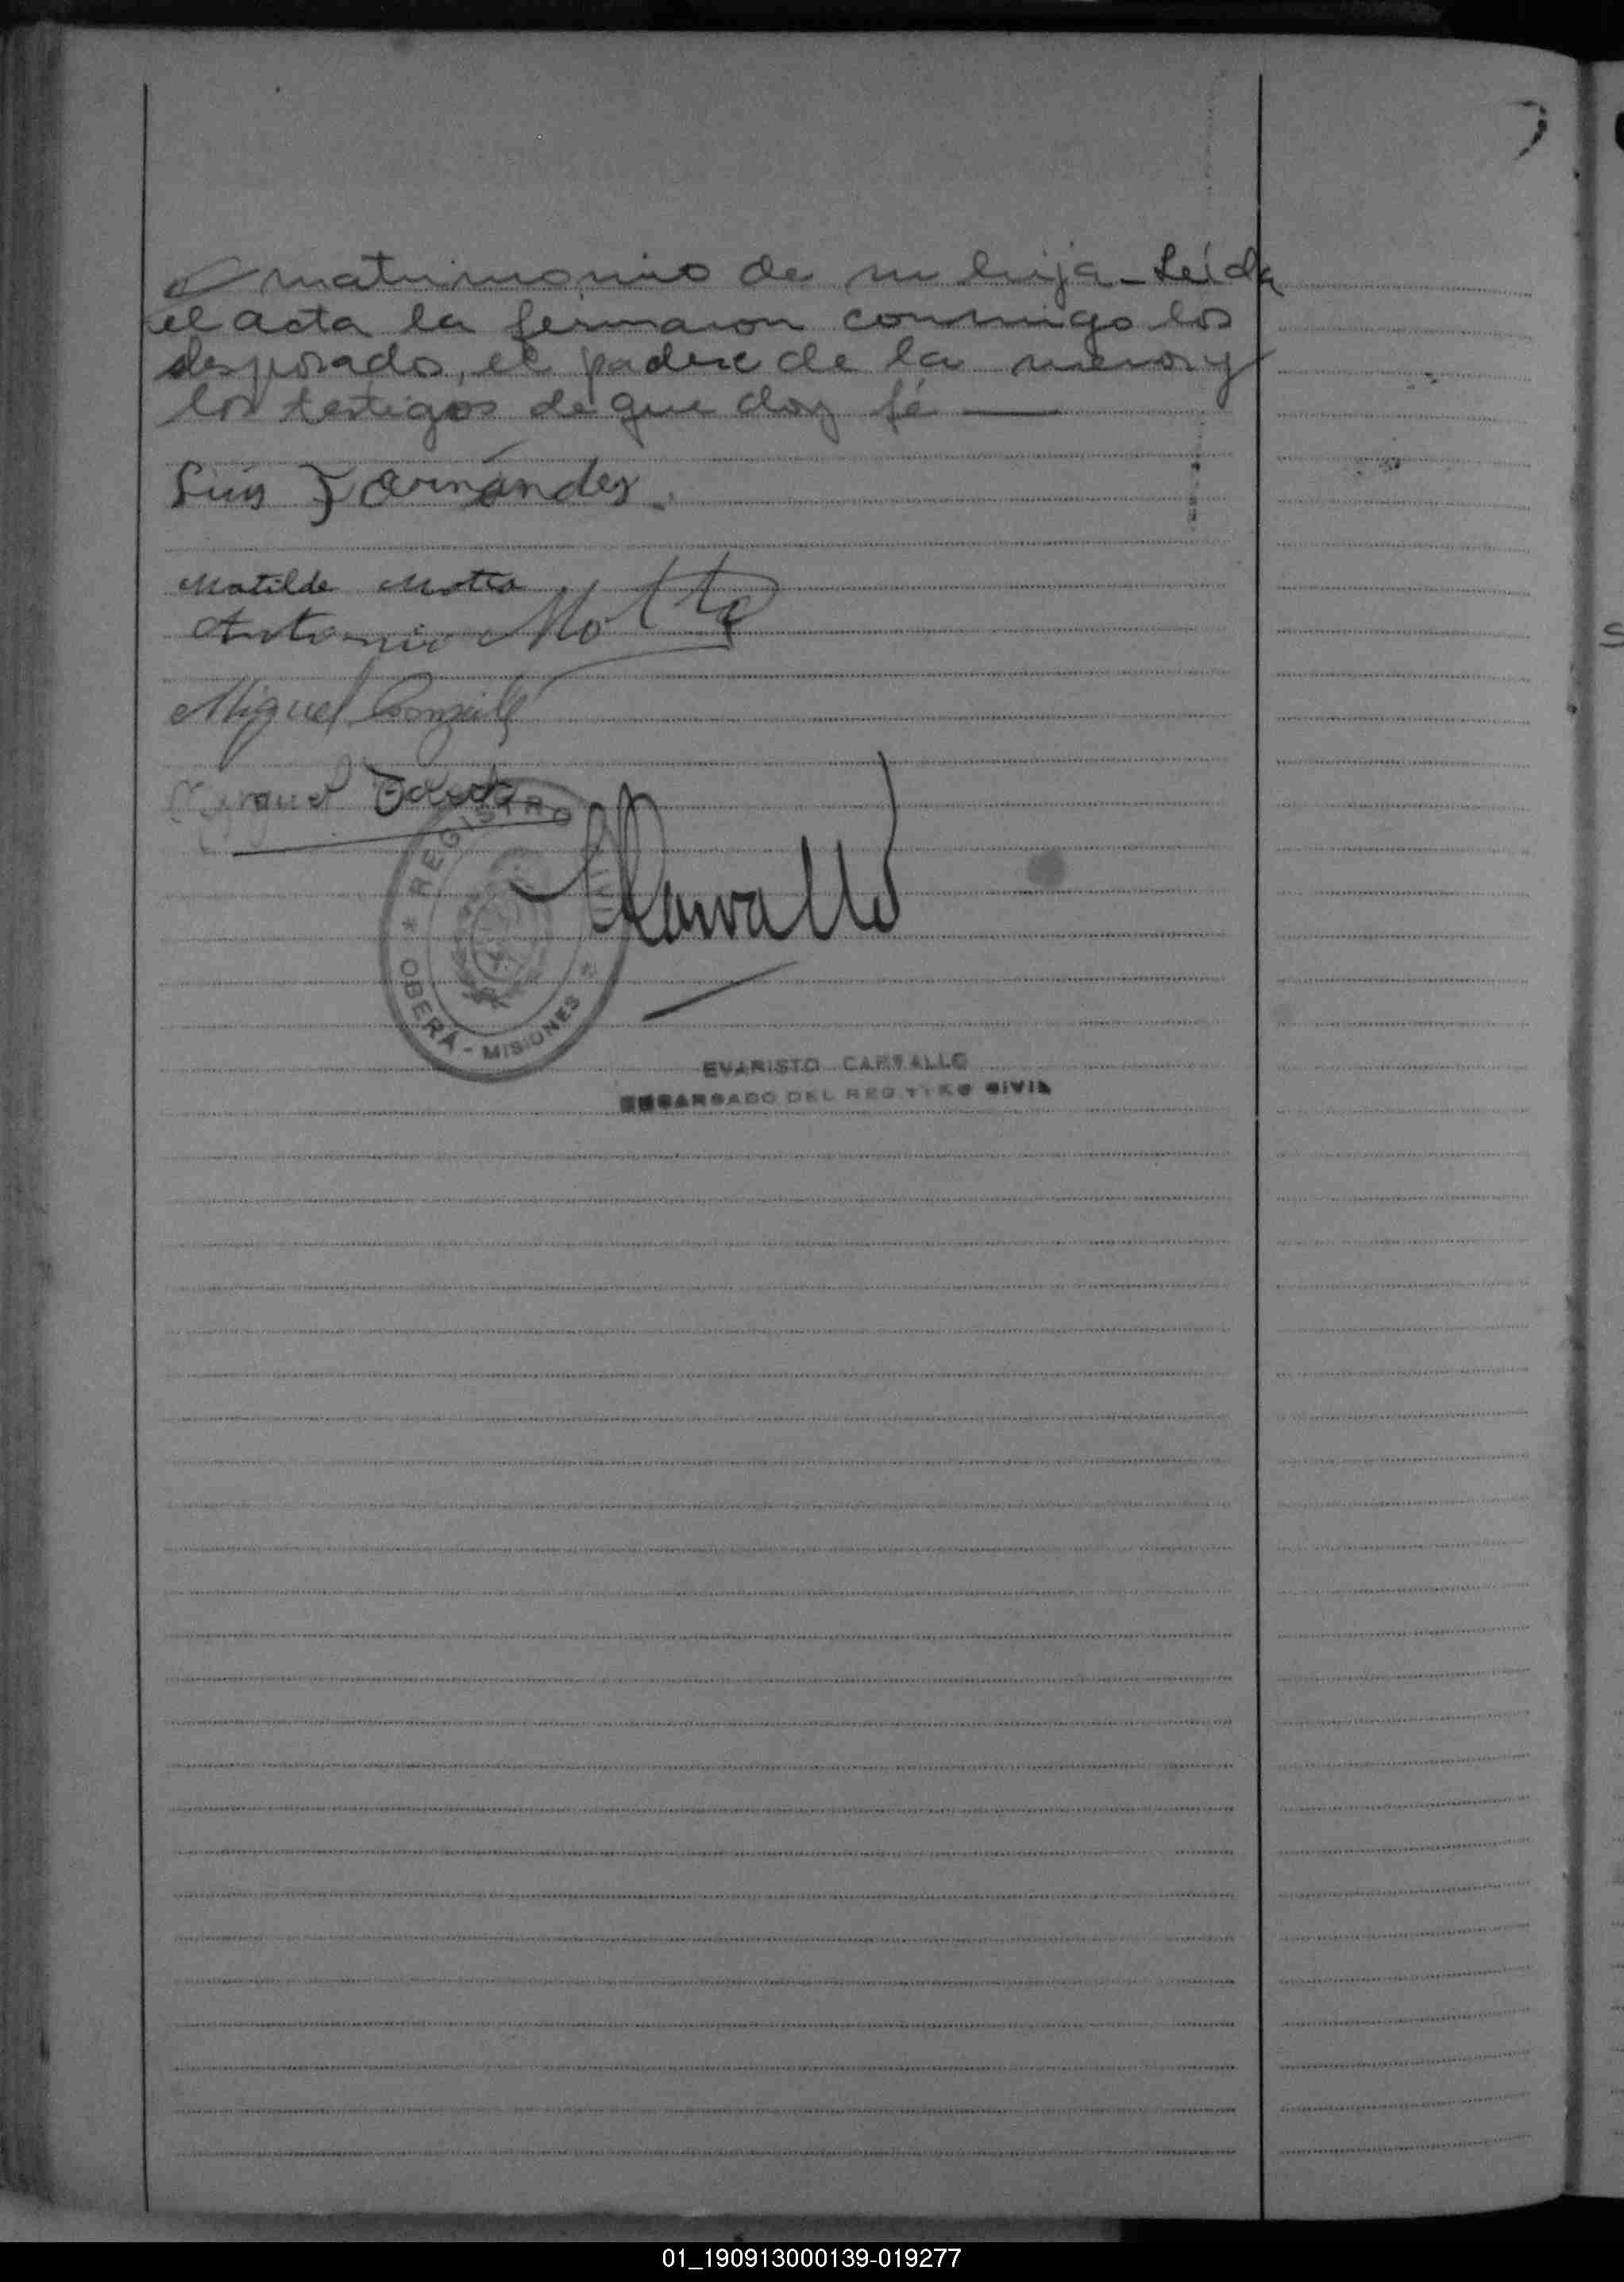 matrimonio de su hija - Leída
el acta la firmaron conmigo los
desposados, el padre de la menor y
los testigos de que doy fé —
Luis Fernández
Matilde Motta
Antonio Motta
Miguel
Miguel
Carvallo
REGISTRO CIVIL
OBERÁ - MISIONES
EVARISTO CARVALLO
ENCARGADO DEL REGISTRO CIVIL
01_190913000139-019277